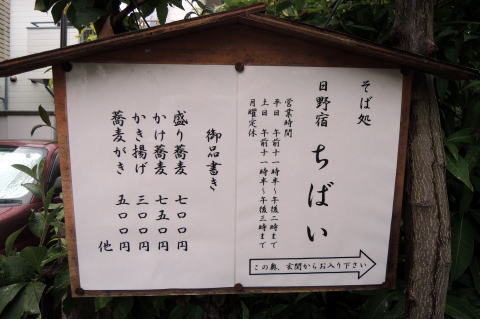 そば処
日野宿 ちばい
営業時間
平日 午前十一時半~午後二時まで
土日 午前十一時半~午後三時まで
月曜定休
この奥、玄関からお入り下さい
御品書き
盛り蕎麦 七〇〇円
かけ蕎麦 七五〇円
かき揚げ 三〇〇円
蕎麦がき 五〇〇円
他